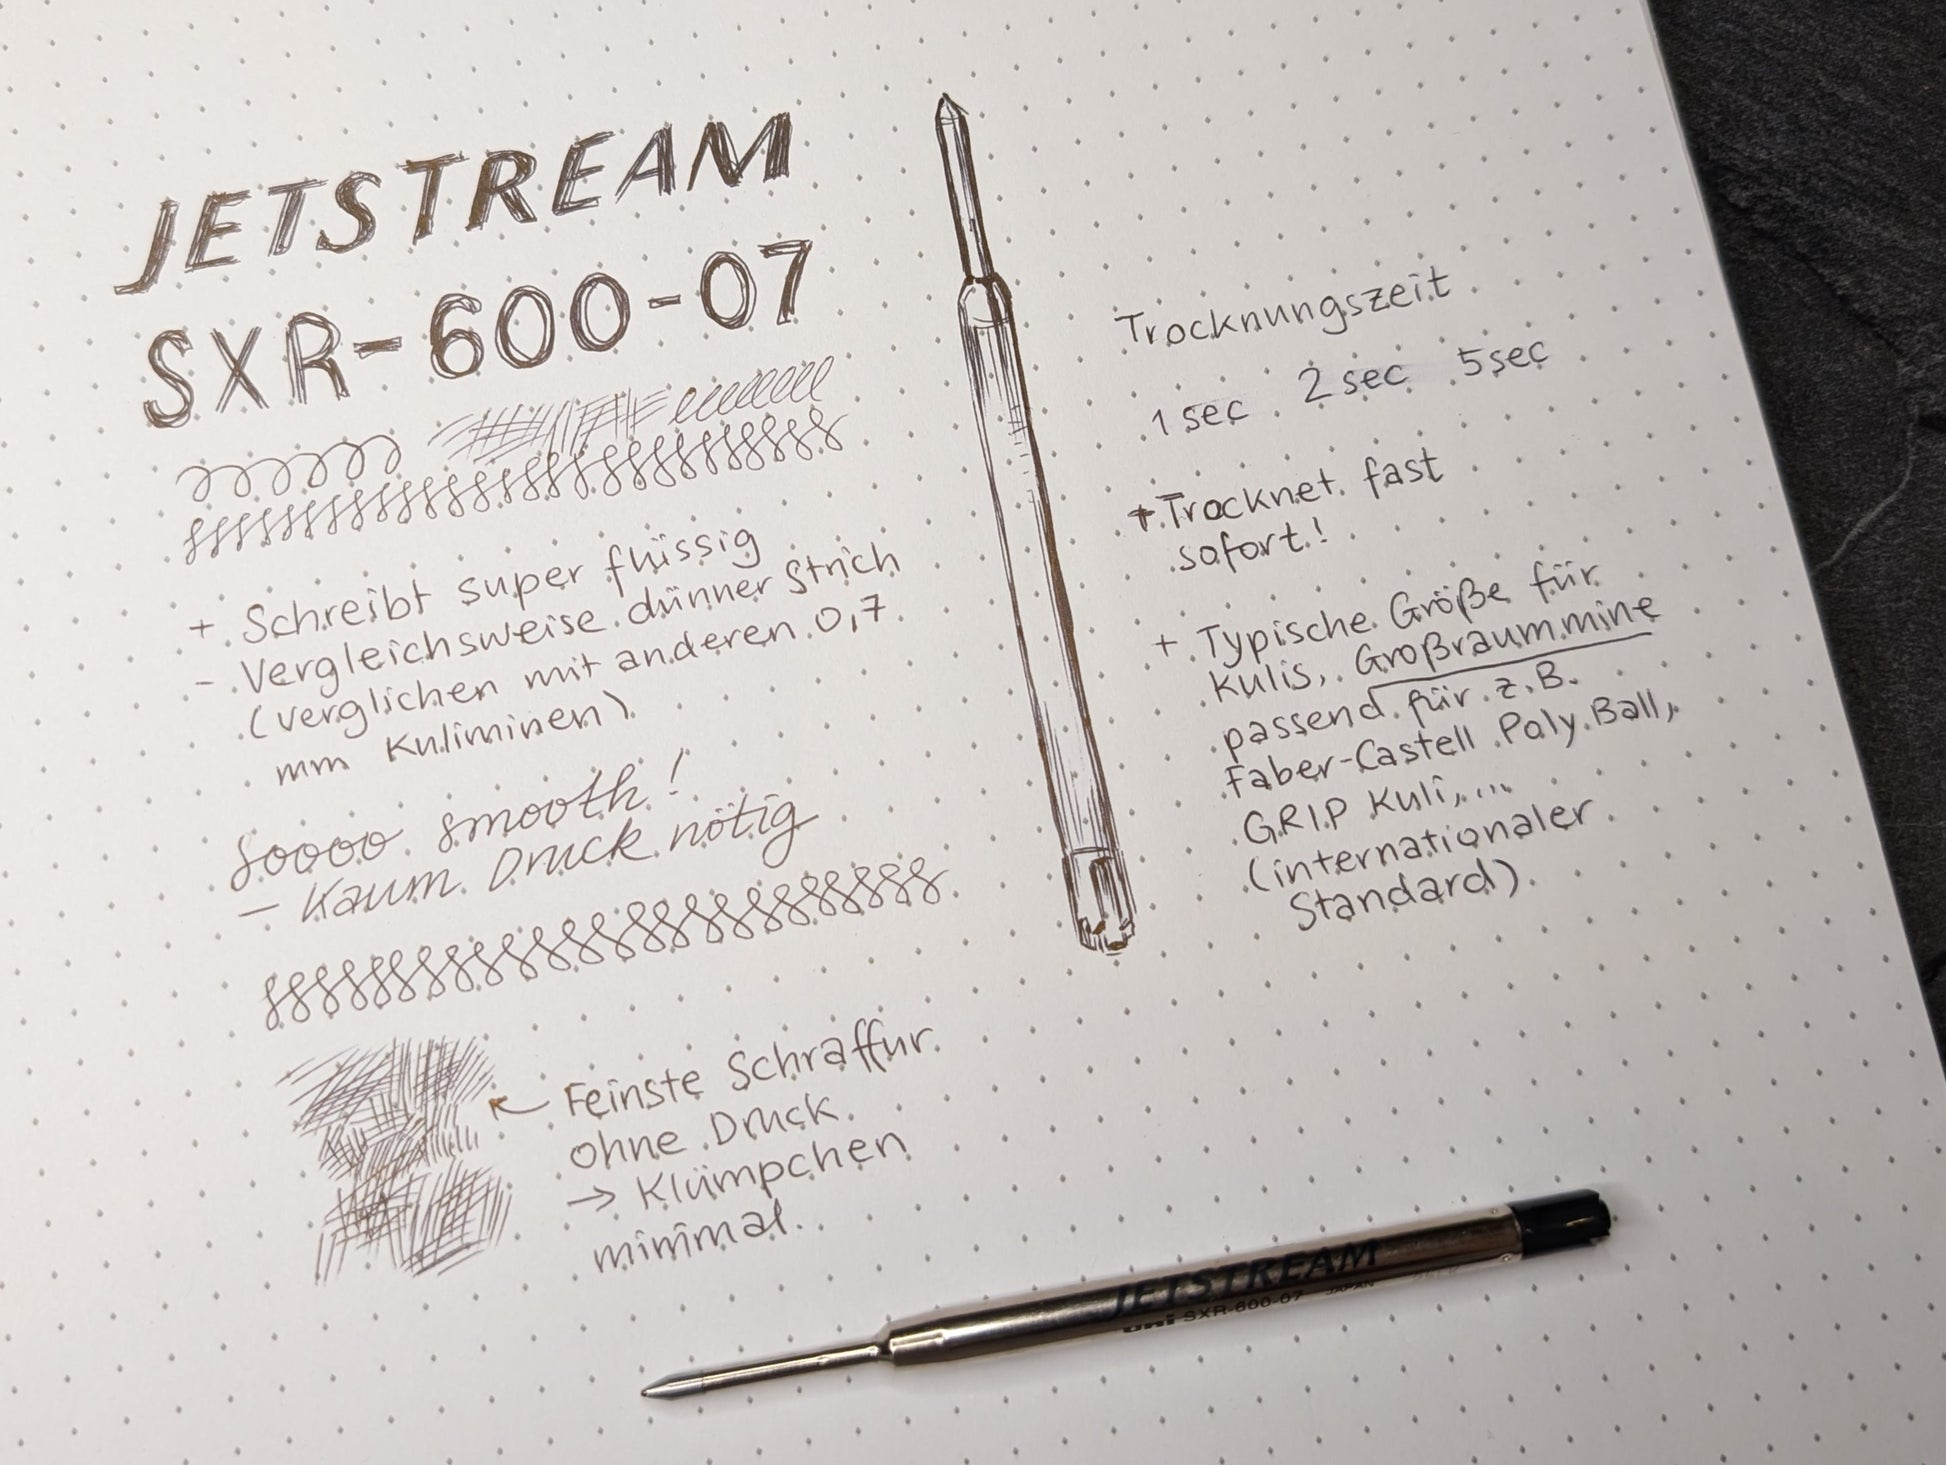 JETSTREAM
SXR-600-07
+ Schreibt super flüssig
- Vergleichsweise dünner Strich
(verglichen mit anderen 0,7
mm Kuliminen)
Soooo smooth!
– Kaum Druck nötig
Feinste Schraffur
ohne Druck
→ Klümpchen
minimal
Trocknungszeit
1sec 2sec 5sec
+ Trocknet fast
sofort!
+ Typische Größe für
Kulis, Großraummine
passend für z.B.
Faber-Castell Poly Ball,
GRIP Kuli,...
(internationaler
Standard)
JETSTREAM
uni SXR-600-07 JAPAN